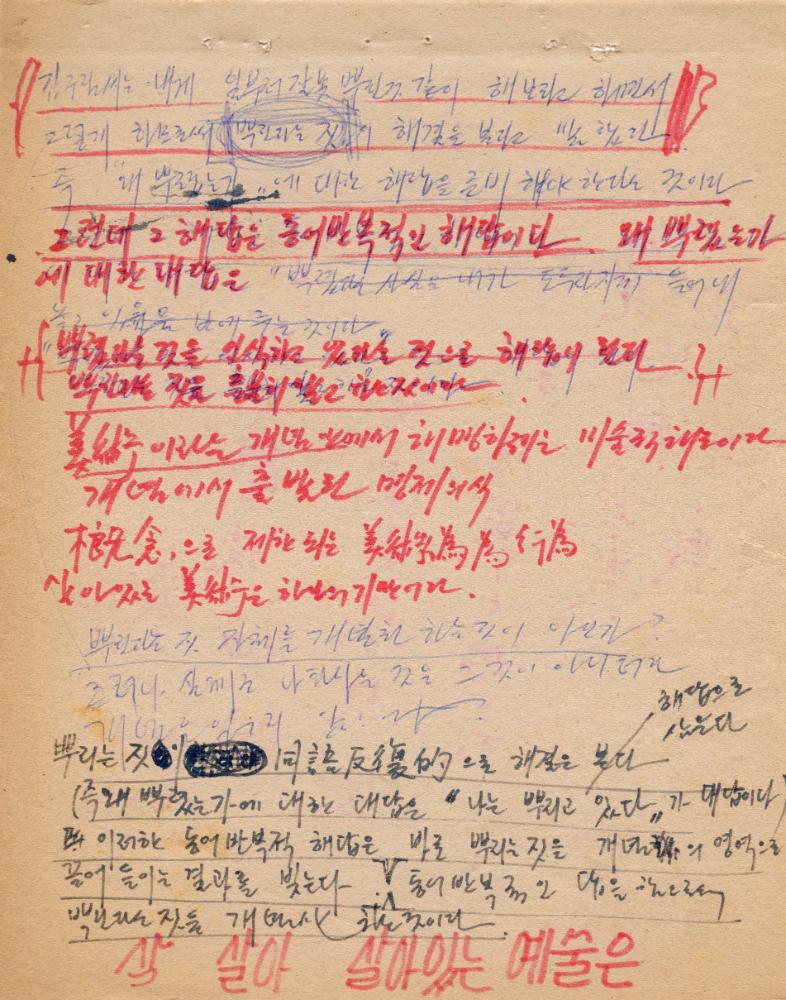 김구림씨는 내게 일부러 잘못 뿌린것 같이 해보라고 하면서
그렇게 하므로써 뿌린다는 짓이 해결을 본다고 말했다
즉 "왜 뿌렸는가"에 대한 해답을 준비해야 한다는 것이다
그런데 그 해답은 동어반복적인 해답이다. 왜 뿌렸는가
에 대한 대답은 "뿌렸던 사실을 내가
것이다
뿌렸다는 것을 인식하고 있다"는 것으로 해답이 된다.
뿌린다는 짓을
美術 이라는 개념 안에서 해명하려는 미술적 태도이다
개념에서 출발된 명제의식
槪念,으로 제한되는 美術 行為
살아있는 美術은 하나의 기만이다.
뿌린다는 짓 자체를 개념화 하는 것이 아닌가?
그러나 실제로 나타나는 것은 그것이 아니더라
개념은
해답으로
삼는다
뿌리는 짓이 同語反復的으로 해결을 본다
(즉 왜 뿌렸는가에 대한 대답은 "나는 뿌리고 있다"가 대답이다)
이러한 동어반복적 해답은 바로 뿌리는 짓을 개념의 영역으로
끌어들이는 결과를 빚는다 동어반복적인 답을 함으로써
뿌린다는 짓을 개념화 하는 것이다.
삭 살아 살아있는 예술은